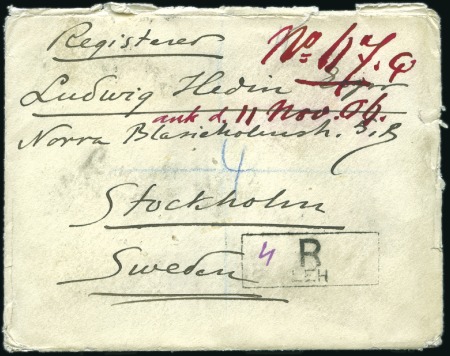 Registerer
No 117. a
Ludwig Hedin Esqr
ank d. 11 Nov. 06.
Norra Blasieholmsh. 5, B
4
Stockholm
Sweden
4 R
LEH